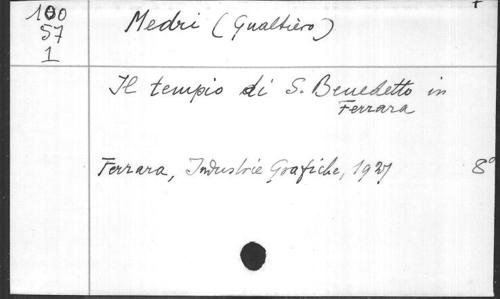 100
57
1
Medri (Gualtiero)
Il tempio di S. Benedetto in
Ferrara
Ferrara, Industrie Grafiche, 1927
8°